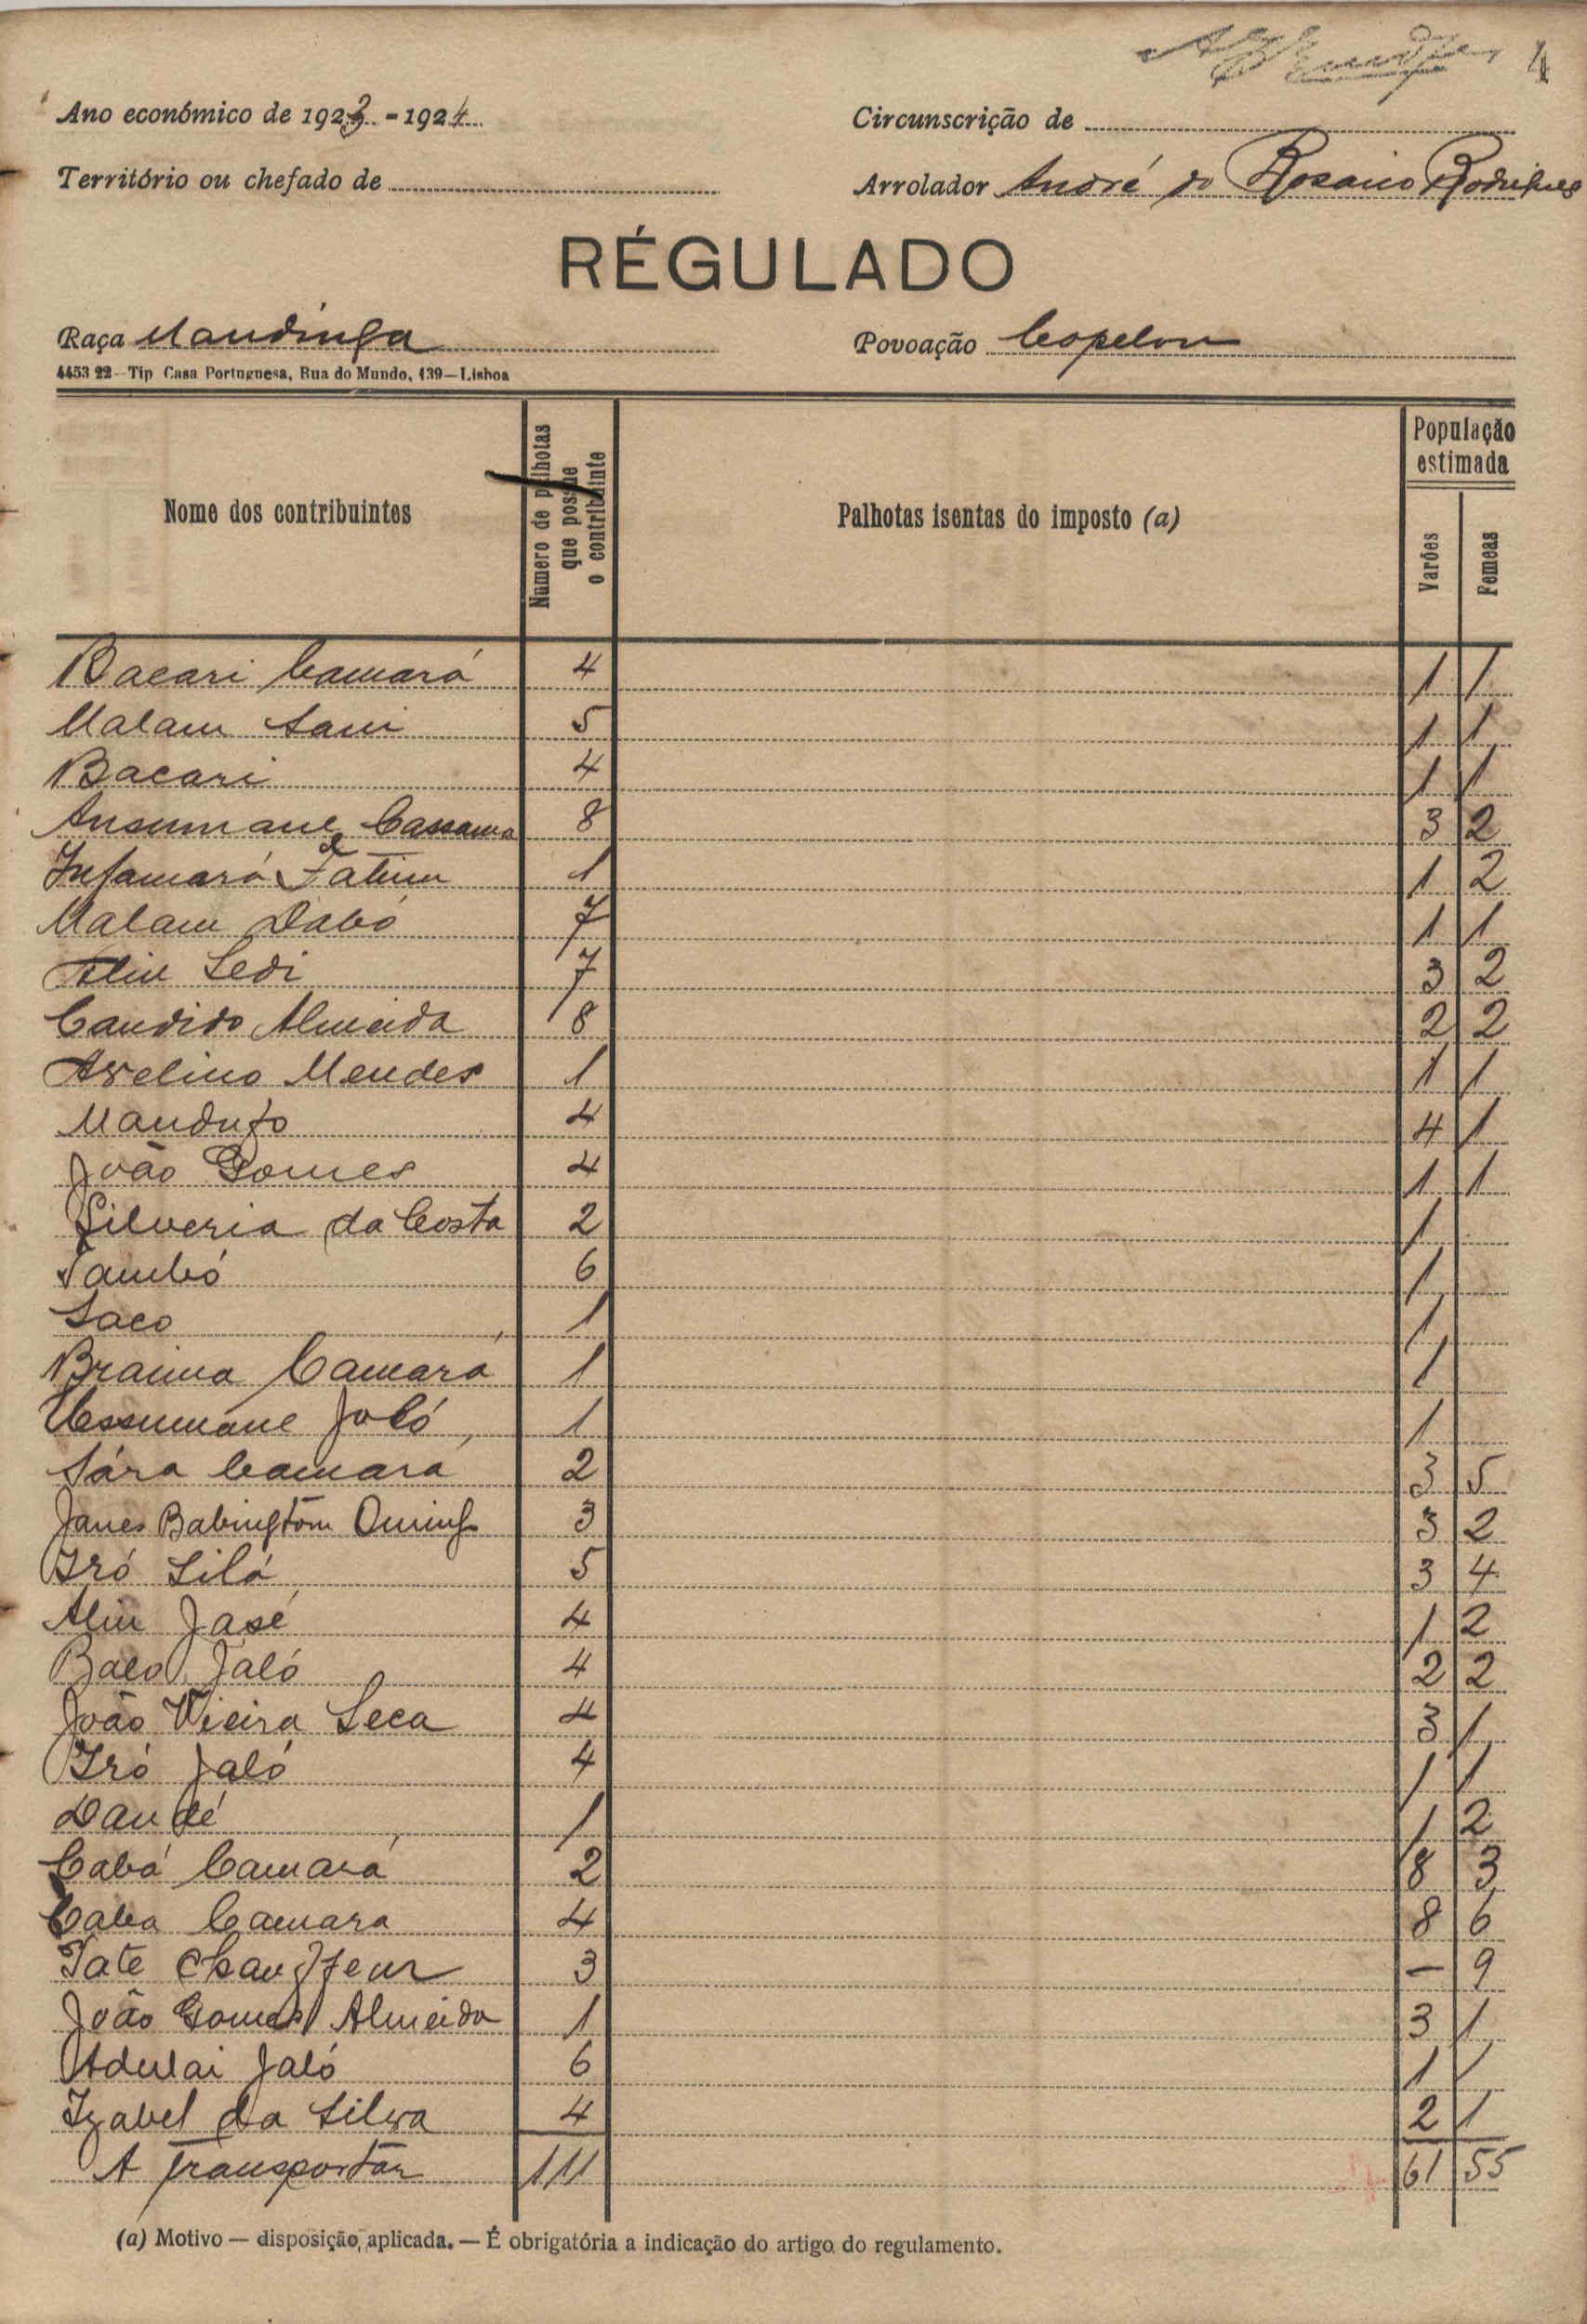 4
Ano económico de 1923 - 1924 Circunscrição de
Território ou chefado de Arrolador André do Rosario Rodrigues
RÉGULADO
Raça Mandinga Povoação Copelon
4453 22 - Tip Casa Portuguesa, Rua do Mundo, 139 — Lisboa
Nome dos contribuintes Numero de palhotas que possue o contribuinte Palhotas isentas do imposto (a) População estimada Varões Femeas
Bacari Camará 4 1 1
Malam Sani 5 1 1
Bacari 4 1 1
Ansumane Cassama 8 3 2
Infamará Fatim 1 1 2
Malam Dabó 7 1 1
Aliu Sedi 7 3 2
Candido Almeida 8 2 2
Avelino Mendes 1 1 1
Mandufo 4 4 1
João Gomes 4 1 1
Silveria da Costa 2 1
Sambó 6 1
Saco 1 1
Braima Camará 1 1
Ussumane Jaló 1 1
Sára Camará 2 3 5
James Babington 3 3 2
Iró Silá 5 3 4
Aliu Jasé 4 1 2
Jaló 4 2 2
João Vieira Seca 4 3 1
Iró Jaló 4 1 1
Daudé 1 1 2
Cabá Camará 2 8 3
Caba Camara 4 8 6
Tate Chauffeur 3 — 9
João Gomes Almeida 1 3 1
Adulai Jaló 6 1 1
Izabel da Silva 4 2 1
A Transportar 111 61 55
(a) Motivo — disposição aplicada. — É obrigatória a indicação do artigo do regulamento.